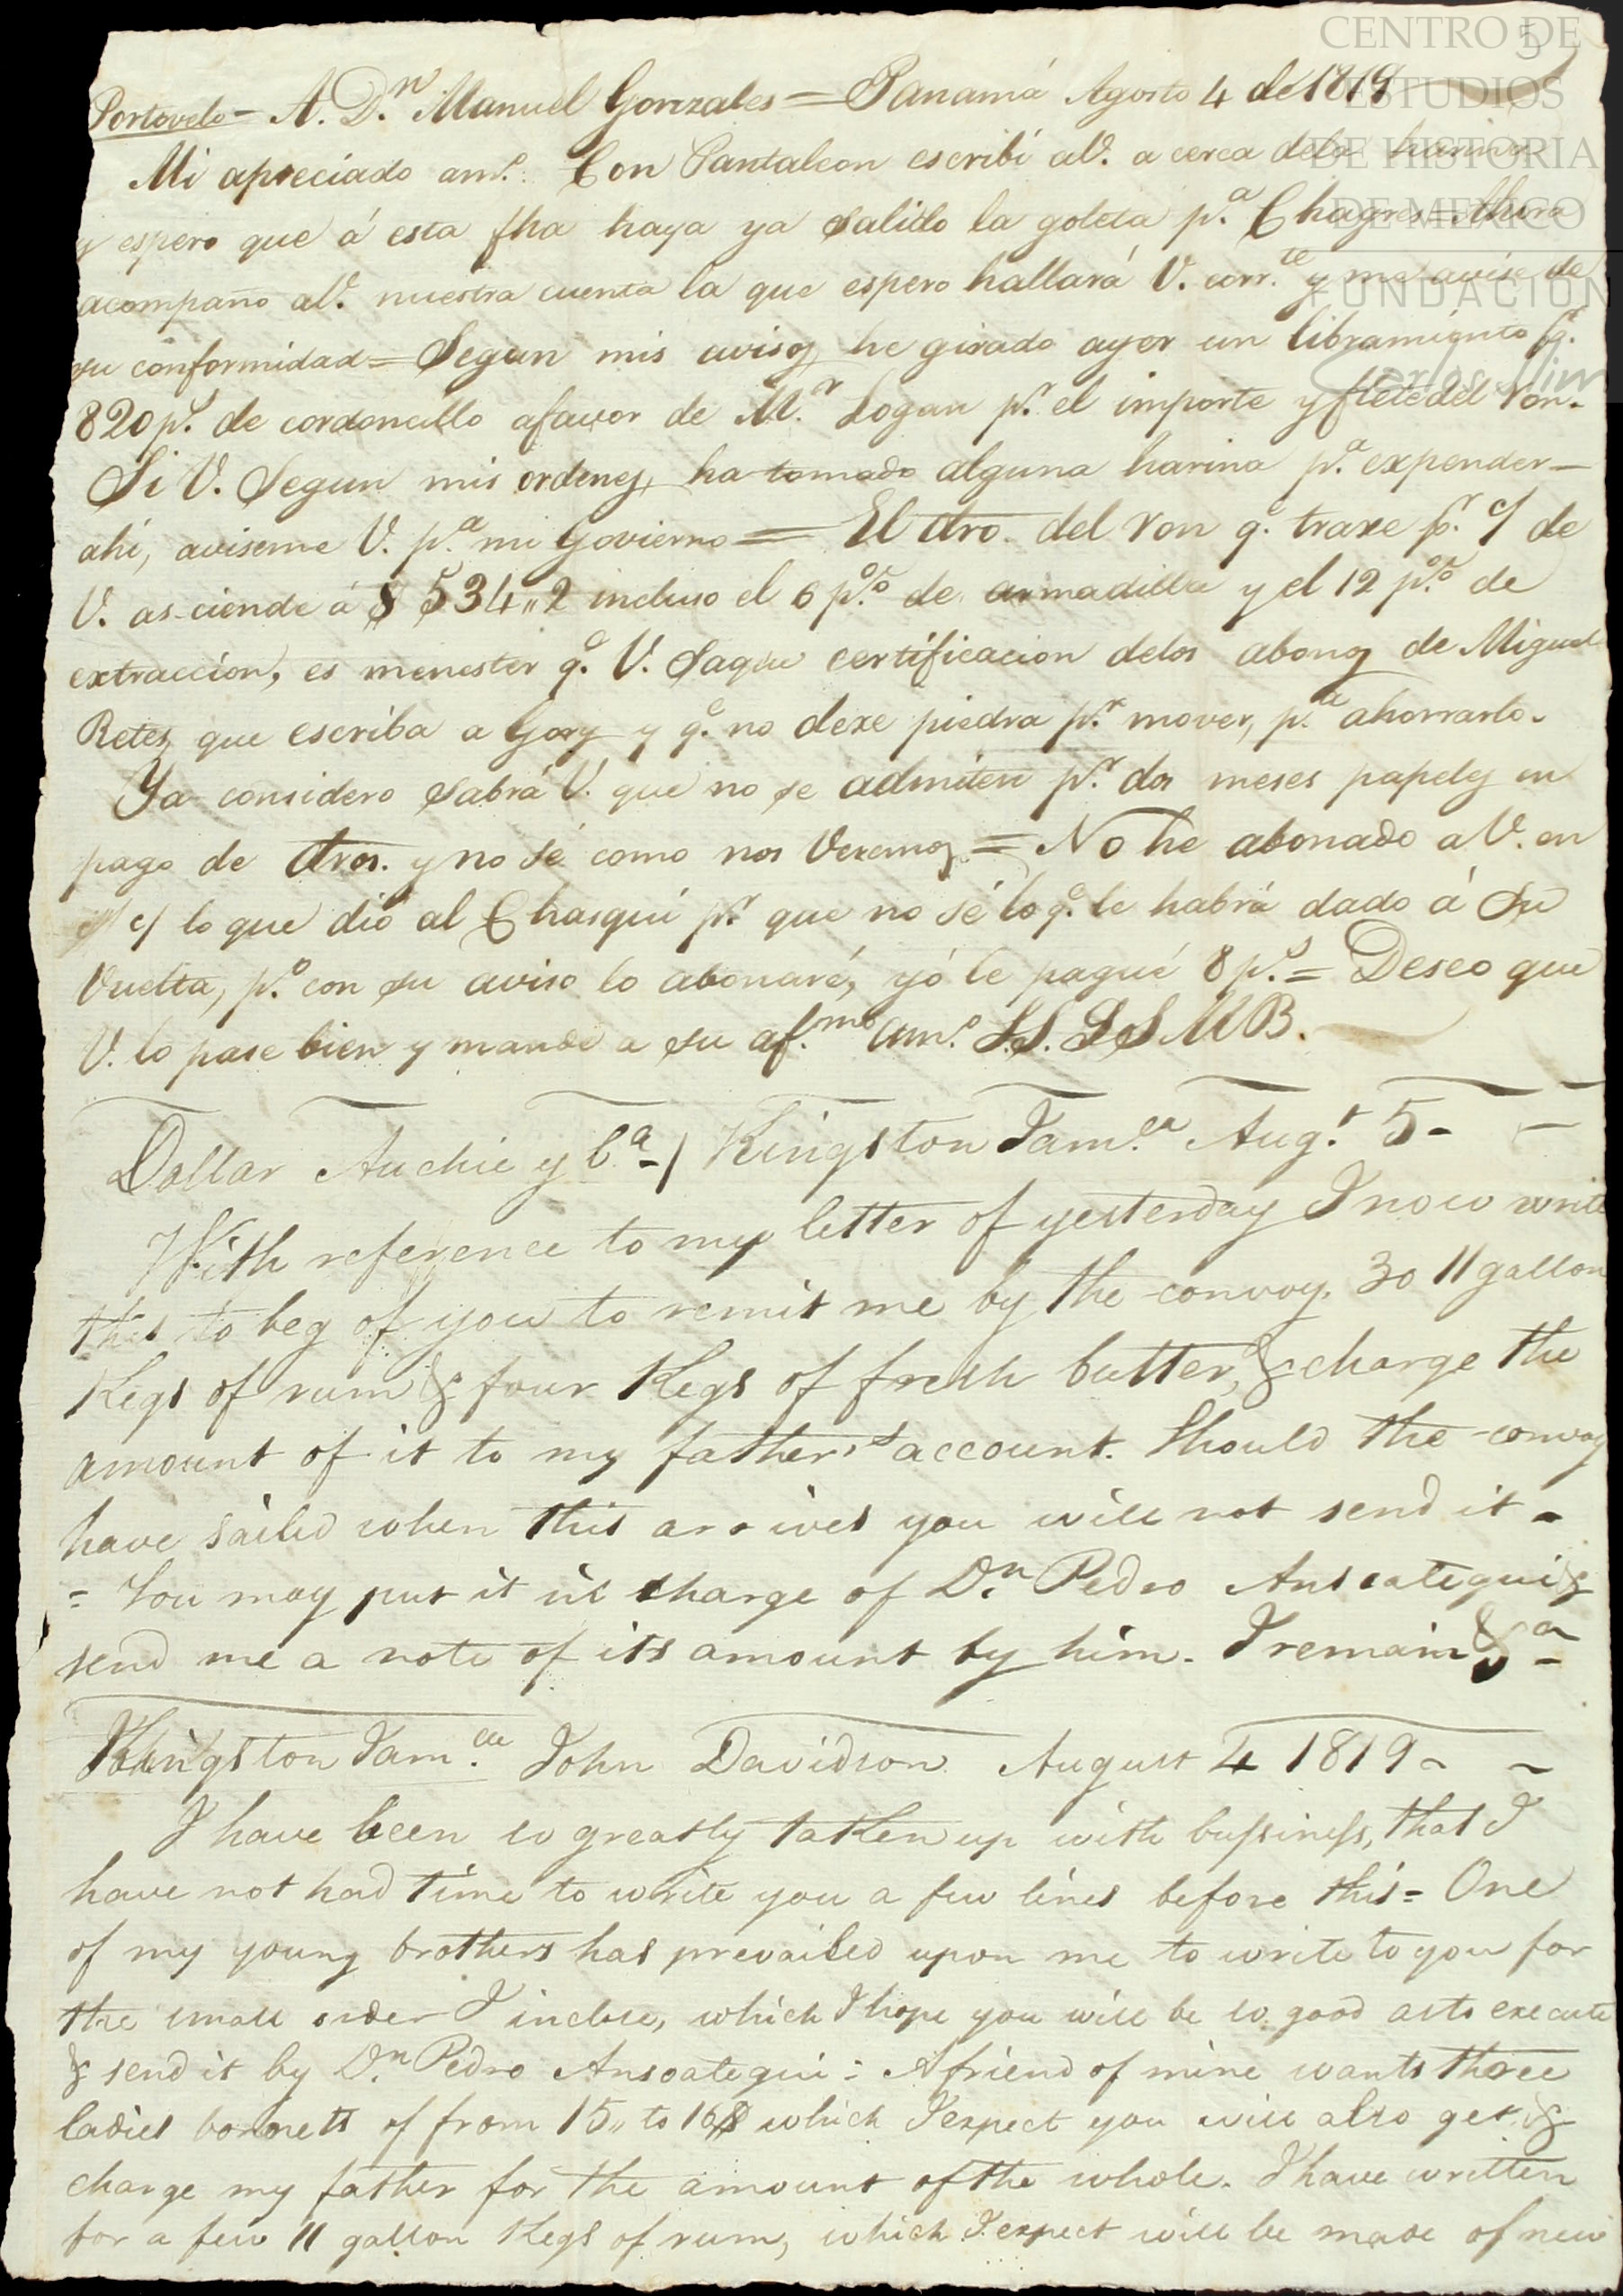 CENTRO DE
ESTUDIOS
DE HISTORIA
DE MEXICO
FUNDACIÓN
Carlos Slim
5
Portovelo = A. D.n Manuel Gonzales = Panamá Agosto 4 de 1819
Mi apreciado am.o Con Pantaleon escribí alV. a cerca dela harina
y espero que á esta fha haya ya salido la goleta p.a Chagres = Ahora
acompaño alV. nuestra cuenta la que espero hallará V. corr.te y me avise de
su conformidad = Segun mis avisos, he girado ayer un libramiento p.r
820 p.s de cordoncillo afavor de M.r Logan p.r el importe y flete del Ron.
Si V. Segun mis ordenes, ha tomado alguna harina p.a expender
ahi, aviseme V. p.a mi Govierno = El dro. del ron q.e traxe p.r c/ de
V. asciende á $ 534,,2 incluso el 6 p.%o de armadilla y el 12 p.%o de
extraccion, es menester q.e V. Saque certificacion delos abonos de Miguel
Retes, que escriba a Gory y q.e no dexe piedra p.r mover, p.a ahorrarlo.
Ya considero sabrá V. que no se admiten p.r dos meses papeles en
pago de dros. y no sé como nos Veremos. = No he abonado a V. en
c/ lo que dió al Chasqui p.r que no sé lo q.e le habrá dado á su
Vuelta, p.o con su aviso lo abonaré, yó le pagué 8 p.s = Deseo que
V. lo pase bien y mande a su af.mo am.o S.S. Q S M B.
Dollar Auchie y C.a / Kingston Jam.ca Aug.t 5 -
With reference to my letter of yesterday I now write
this to beg of you to remit me by the convoy. 30 11 gallon
Kegs of rum & four Kegs of fresh butter, & charge the
amount of it to my father's account. Should the convoy
have sailed when this arrives you will not send it -
= You may put it in charge of D.n Pedro Ansoategui &
send me a note of its amount by him. I remain &.a
Kingston Jam.ca John Davidson August 4 1819 -
I have been so greatly taken up with bussiness, that I
have not had time to write you a few lines before this = One
of my young brothers has prevailed upon me to write to you for
the small order I inclose, which I hope you will be so good as to execute
& send it by D.n Pedro Ansoategui: A friend of mine wants three
ladies bonnets of from 15,, to 16$ which I expect you will also get &
charge my father for the amount of the whole. I have written
for a few 11 gallon Kegs of rum, which I expect will be made of new